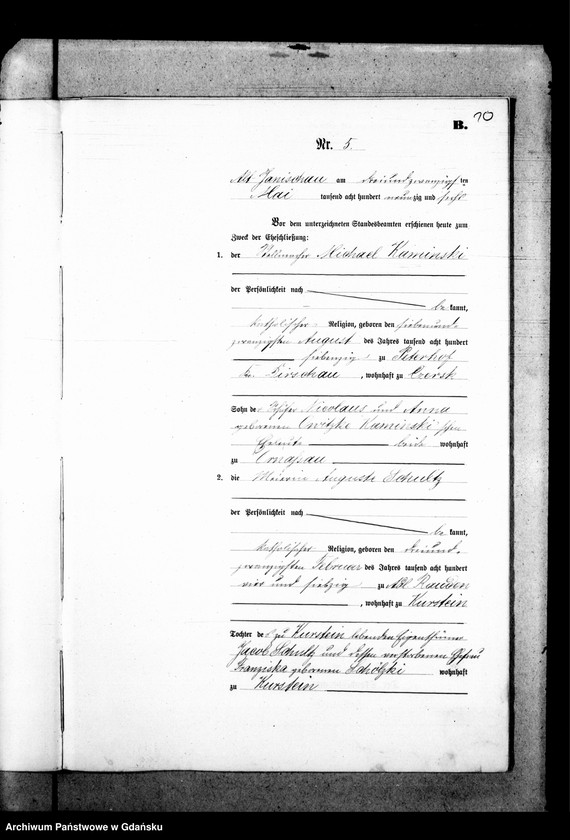 B. 70
Nr. 5.
Alt Janischau am dreiundzwanzigsten
Mai tausend acht hundert neunzig und sechs
Vor dem unterzeichneten Standesbeamten erschienen heute zum
Zweck der Eheschließung:
1. der Michael Kaminski
der Persönlichkeit nach
be kannt,
katholischer Religion, geboren den siebenund-
zwanzigsten August des Jahres tausend acht hundert
siebenzig zu Peterhof
Kr. Dirschau, wohnhaft zu Czersk
Sohn der Nicolaus und Anna
geborenen Kaminski'schen
Eheleute beide wohnhaft
zu
2. die Meierin Auguste Schultz
der Persönlichkeit nach
be kannt,
katholischer Religion, geboren den dreiund-
zwanzigsten Februar des Jahres tausend acht hundert
vier und siebzig zu Adl Rauden
, wohnhaft zu Kurstein
Tochter des zu Kurstein lebenden Eigenthümers
Jacob Schultz und dessen verstorbenen Ehefrau
Franziska geborenen wohnhaft
zu Kurstein
Archiwum Państwowe w Gdańsku